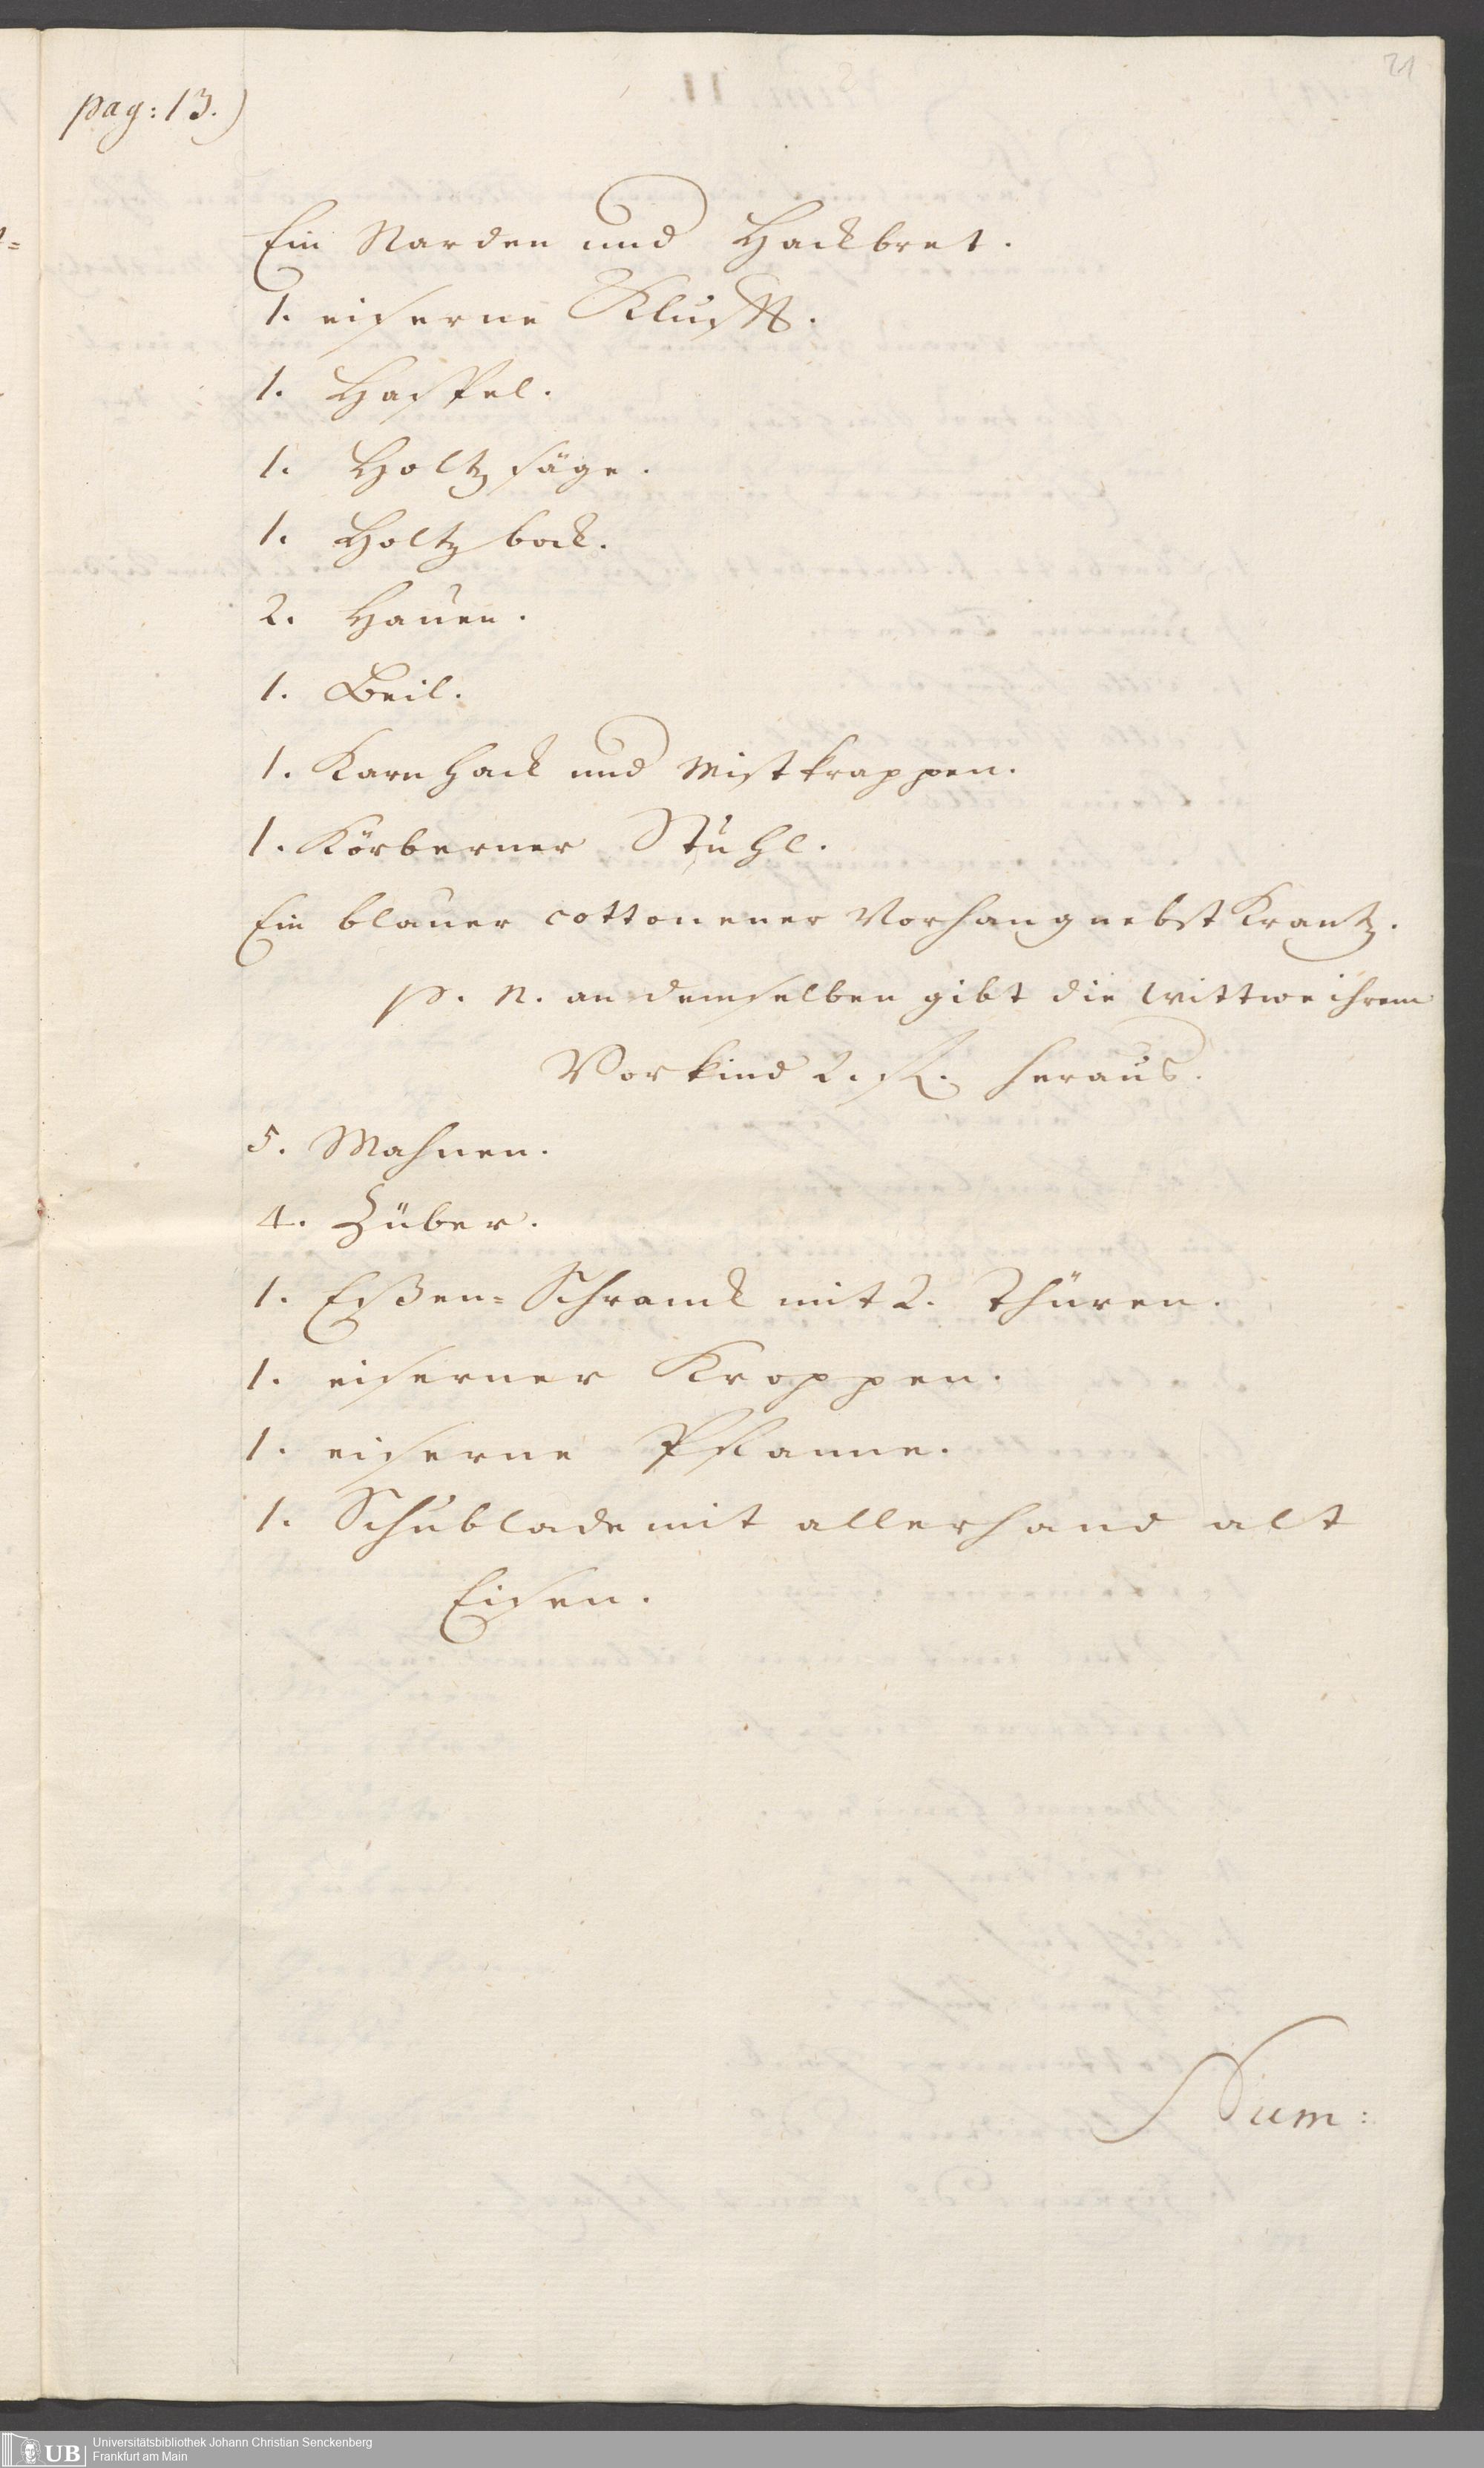 21
pag: 13.)
Ein Narden und Hackbret.
1. eiserne Klufft.
1. Haspel.
1. Holtz säge.
1. Holtz bock.
2. Hauen.
1. Beil.
1. Karn hack und Mistkrappen.
1. Körberner Stuhl.
Ein blauer cottonener Vorhang nebst Krantz.
p. n. an demselben gibt die Wittwe ihrem
Vorkind 2. fl. heraus.
5. Mahnen.
4. Züber.
1. Eßen-Schranck mit 2. Thüren.
1. eiserner Kroppen.
1. eiserne Pfanne.
1. Schublade mit allerhand alt
Eisen.
Num:
UB
Universitätsbibliothek Johann Christian Senckenberg
Frankfurt am Main